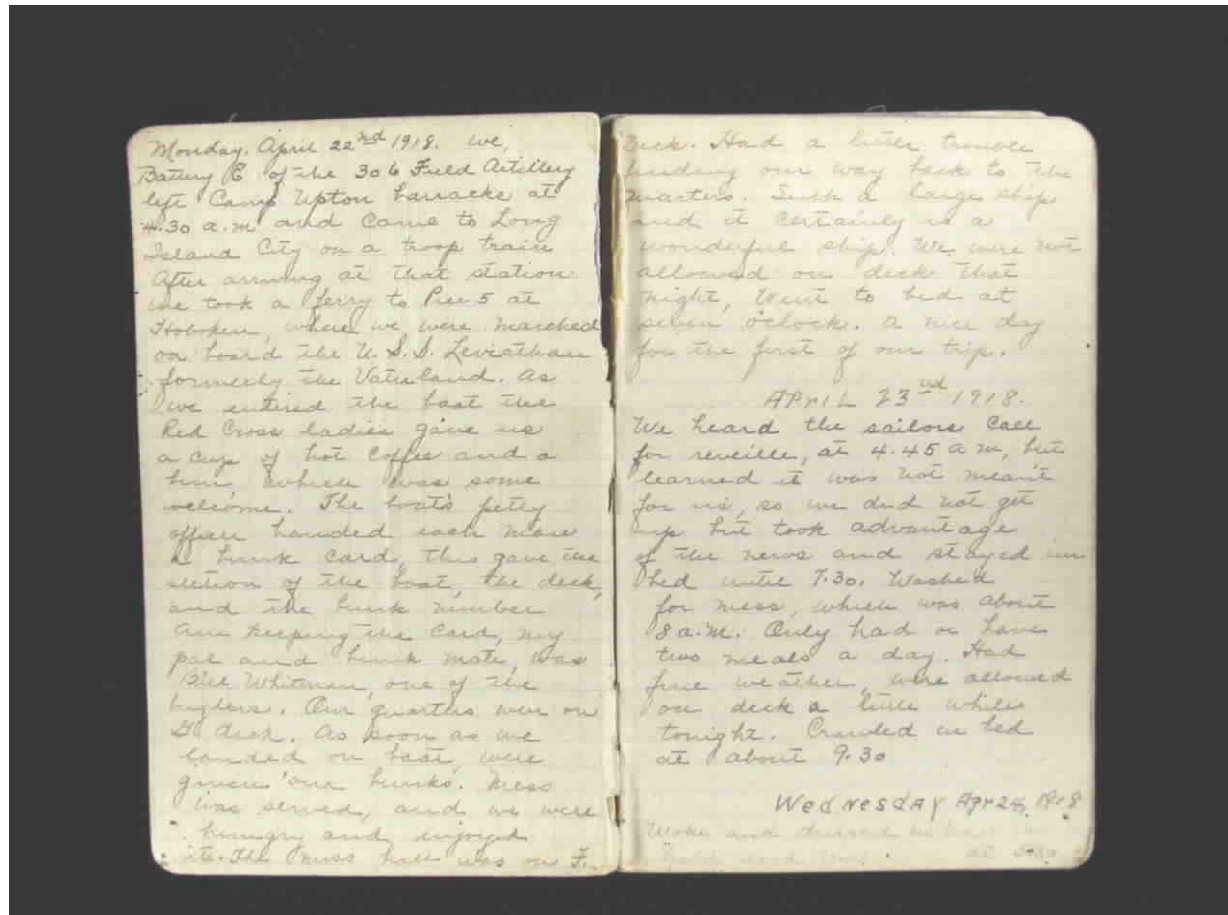 Monday. April 22nd 1918. We,
Battery E of the 306 Field Artillery
left Camp Upton barracks at
4.30 a.m and came to Long
Island City on a troop train
After arriving at that station
we took a ferry to Pier 5 at
Hoboken, where we were marched
on board the U.S.S. Leviathan
formerly the Vaterland. As
we entered the boat the
Red Cross ladies gave us
a cup of hot coffee and a
bun, which was some
welcome. The boat's petty
officer handed each man
a bunk card, this gave the
section of the boat, the deck,
and the bunk number
am keeping the card, my
pal and bunk mate, was
Bill Whiteman, one of the
buglers. Our quarters were on
G deck. As soon as we
landed on boat, were
given our bunks. Mess
was served, and we were
hungry and enjoyed
it. The mess hall was on F.
Deck. Had a little trouble
finding our way back to the
quarters. Such a large ship
and it certainly is a
wonderful ship. We were not
allowed on deck that
night, went to bed at
seven o'clock. A nice day
for the first of our trip.
APRIL 23rd 1918.
We heard the sailors call
for reveille, at 4.45 a m, but
learned it was not meant
for us, so we did not get
up but took advantage
of the news and stayed in
bed until 7.30. Washed
for mess, which was about
8 a.m. Only had or have
two meals a day. Had
fine weather, were allowed
on deck a little while
tonight. Crawled in bed
at about 9.30
Wednesday Apr 24, 1918
Woke and dressed
at